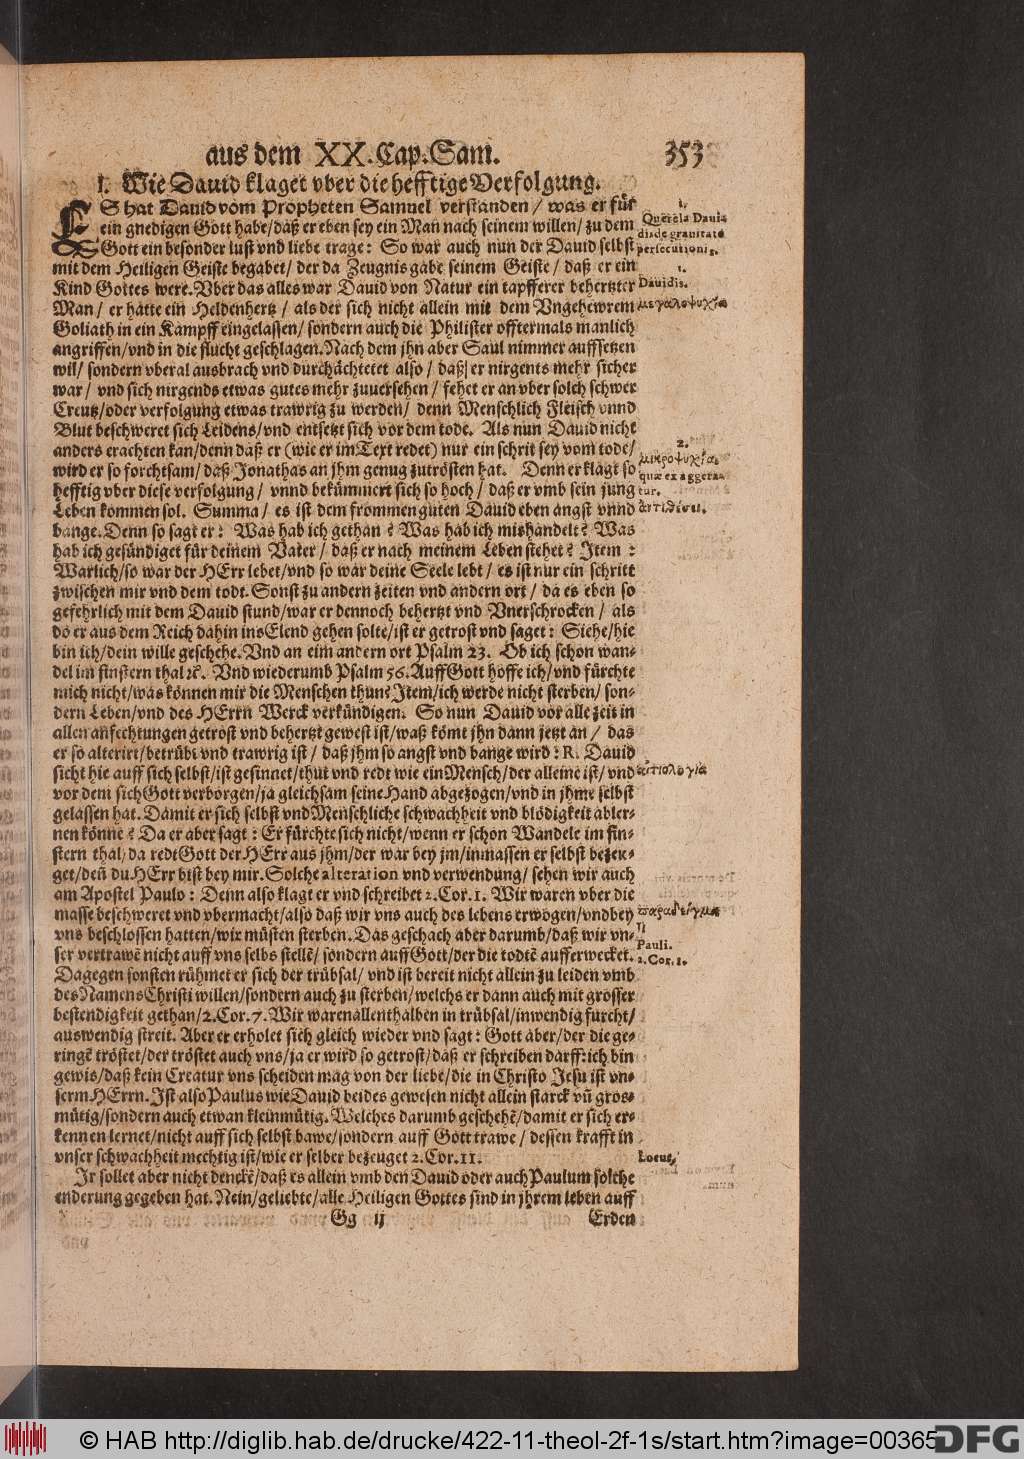 aus dem XX. Cap. Sam. 353
I. Wie Dauid klaget vber die hefftige Verfolgung.
ES hat Dauid vom Propheten Samuel verstanden / was er für
ein gnedigen Gott habe/daß er eben sey ein Man nach seinem willen/ zu dem
Gott ein besonder lust vnd liebe trage: So war auch nun der Dauid selbst
mit dem Heiligen Geiste begabet/ der da Zeugnis gabe seinem Geiste / daß er ein
Kind Gottes were. Vber das alles war Dauid von Natur ein tapfferer behertzter
Man / er hatte ein Heldenhertz / als der sich nicht allein mit dem Vngehewrem
Goliath in ein Kampff eingelassen/ sondern auch die Philister offtermals manlich
angriffen/vnd in die flucht geschlagen. Nach dem jhn aber Saul nimmer auffsetzen
wil/ sondern vberal ausbrach vnd durchächtetet also / daß er nirgents mehr sicher
war / vnd sich nirgends etwas gutes mehr zuuersehen / fehet er an vber solch schwer
Creutz/oder verfolgung etwas trawrig zu werden/ denn Menschlich Fleisch vnnd
Blut beschweret sich Leidens/vnd entsetzt sich vor dem tode. Als nun Dauid nicht
anders erachten kan/denn daß er (wie er im Text redet) nur ein schrit sey vom tode/
wird er so forchtsam/ daß Jonathas an jhm genug zutrösten hat. Denn er klagt so
hefftig vber diese verfolgung / vnnd bekümmert sich so hoch / daß er vmb sein jung
Leben kommen sol. Summa / es ist dem frommen guten Dauid eben angst vnnd
bange. Denn so sagt er: Was hab ich gethan? Was hab ich mishandelt? Was
hab ich gesündiget für deinem Vater / daß er nach meinem Leben stehet? Item:
Warlich/so war der HErr lebet/vnd so war deine Seele lebt / es ist nur ein schritt
zwischen mir vnd dem todt. Sonst zu andern zeiten vnd andern ort / da es eben so
gefehrlich mit dem Dauid stund/war er dennoch behertzt vnd Vnerschrocken / als
do er aus dem Reich dahin ins Elend gehen solte/ist er getrost vnd saget: Siehe/hie
bin ich/dein wille geschehe. Vnd an eim andern ort Psalm 23. Ob ich schon wan-
del im finstern thal ꝛc. Vnd wiederumb Psalm 56. Auff Gott hoffe ich/vnd fürchte
mich nicht/was können mir die Menschen thun? Item/ich werde nicht sterben/ son-
dern Leben/vnd des HErrn Werck verkündigen. So nun Dauid vor alle zeit in
allen anfechtungen getrost vnd behertzt gewest ist/waß kömt jhn dann jetzt an / das
er so alterirt/betrübt vnd trawrig ist / daß jhm so angst vnd bange wird: R. Dauid
sicht hie auff sich selbst/ist gesinnet/thut vnd redt wie ein Mensch/der alleine ist/vnd
vor dem sich Gott verborgen/ja gleichsam seine Hand abgezogen/vnd in jhme selbst
gelassen hat. Damit er sich selbst vnd Menschliche schwachheit vnd blödigkeit abler-
nen könne? Da er aber sagt: Er fürchte sich nicht/wenn er schon Wandele im fin-
stern thal/da redt Gott der HErr aus jhm/der war bey jm/inmassen er selbst bezeu-
get/deñ du HErr bist bey mir. Solche alteration vnd verwendung/ sehen wir auch
am Apostel Paulo: Denn also klagt er vnd schreibet 2. Cor. 1. Wir waren vber die
masse beschweret vnd vbermacht/also daß wir vns auch des lebens erwogen/vnd bey
vns beschlossen hatten/wir müsten sterben. Das geschach aber darumb/daß wir vn-
ser vertrawẽ nicht auff vns selbs stellẽ/ sondern auff Gott/der die todtẽ aufferwecket.
Dagegen sonsten rühmet er sich der trübsal/ vnd ist bereit nicht allein zu leiden vmb
des Namens Christi willen/sondern auch zu sterben/welchs er dann auch mit grosser
bestendigkeit gethan/2. Cor. 7. Wir waren allenthalben in trübsal/inwendig furcht/
auswendig streit. Aber er erholet sich gleich wieder vnd sagt: Gott aber/der die ge-
ringẽ tröstet/der tröstet auch vns/ja er wird so getrost/daß er schreiben darff: ich bin
gewis/daß kein Creatur vns scheiden mag von der liebe/die in Christo Jesu ist vn-
serm HErrn. Ist also Paulus wie Dauid beides gewesen nicht allein starck vñ gros-
mütig/sondern auch etwan kleinmütig. Welches darumb geschehẽ/damit er sich er-
kennen lernet/nicht auff sich selbst bawe/sondern auff Gott trawe / dessen krafft in
vnser schwachheit mechtig ist/wie er selber bezeuget 2. Cor. 11.
Ir sollet aber nicht denckẽ/daß es allein vmb den Dauid oder auch Paulum solche
enderung gegeben hat. Nein/geliebte/alle Heiligen Gottes sind in jhrem leben auff
Gg ij Erden
1.
Querela Daui-
dis de grauitate
persecutionis.
1.
Dauidis.
μεγαλοψυχία
2.
μικροψυχία.
quæ exaggera-
tur.
ἀντιθέσει.
αἰτιολογία
παραδείγμα
Pauli.
2. Cor. 1.
© HAB http://diglib.hab.de/drucke/422-11-theol-2f-1s/start.htm?image=00365
DFG